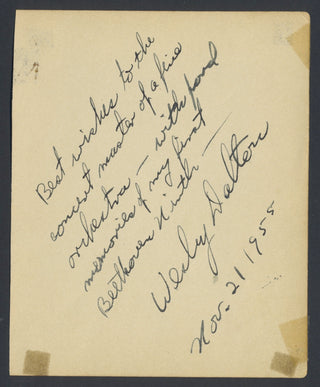 Best wishes to the
concert master of a fine
orchestra — with fond
memories of my first
Beethoven Ninth —
Wesley Dalton
Nov. 21 1955